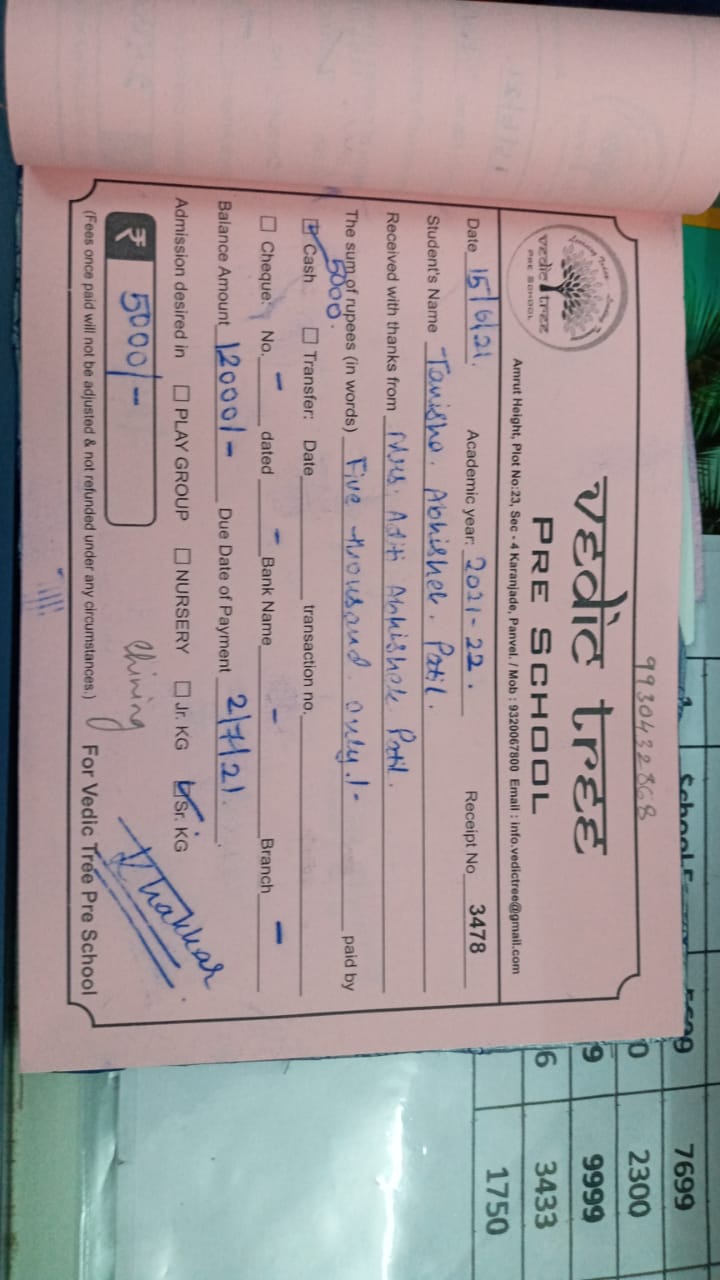 9930432868
vedic tree
PRE SCHOOL
vedic tree
PRE SCHOOL
Amrut Height, Plot No:23, Sec - 4 Karanjade, Panvel. / Mob : 9320067800 Email : info.vedictree@gmail.com
Date 15/6/21. Academic year: 2021-22. Receipt No 3478
Student's Name Tanisha. Abhishek. Patil.
Received with thanks from Mrs. Aditi Abhishek Patil.
The sum of rupees (in words) Five thousand. only.1- paid by
5000.
Cash Transfer: Date transaction no.
Cheque: No. - dated - Bank Name - Branch -
Balance Amount 12000/- Due Date of Payment 2/7/21.
Admission desired in PLAY GROUP NURSERY Jr. KG Sr. KG
₹ 5000/-
Thakkar
(Fees once paid will not be adjusted & not refunded under any circumstances.) For Vedic Tree Pre School
7699
2300
9999
3433
1750